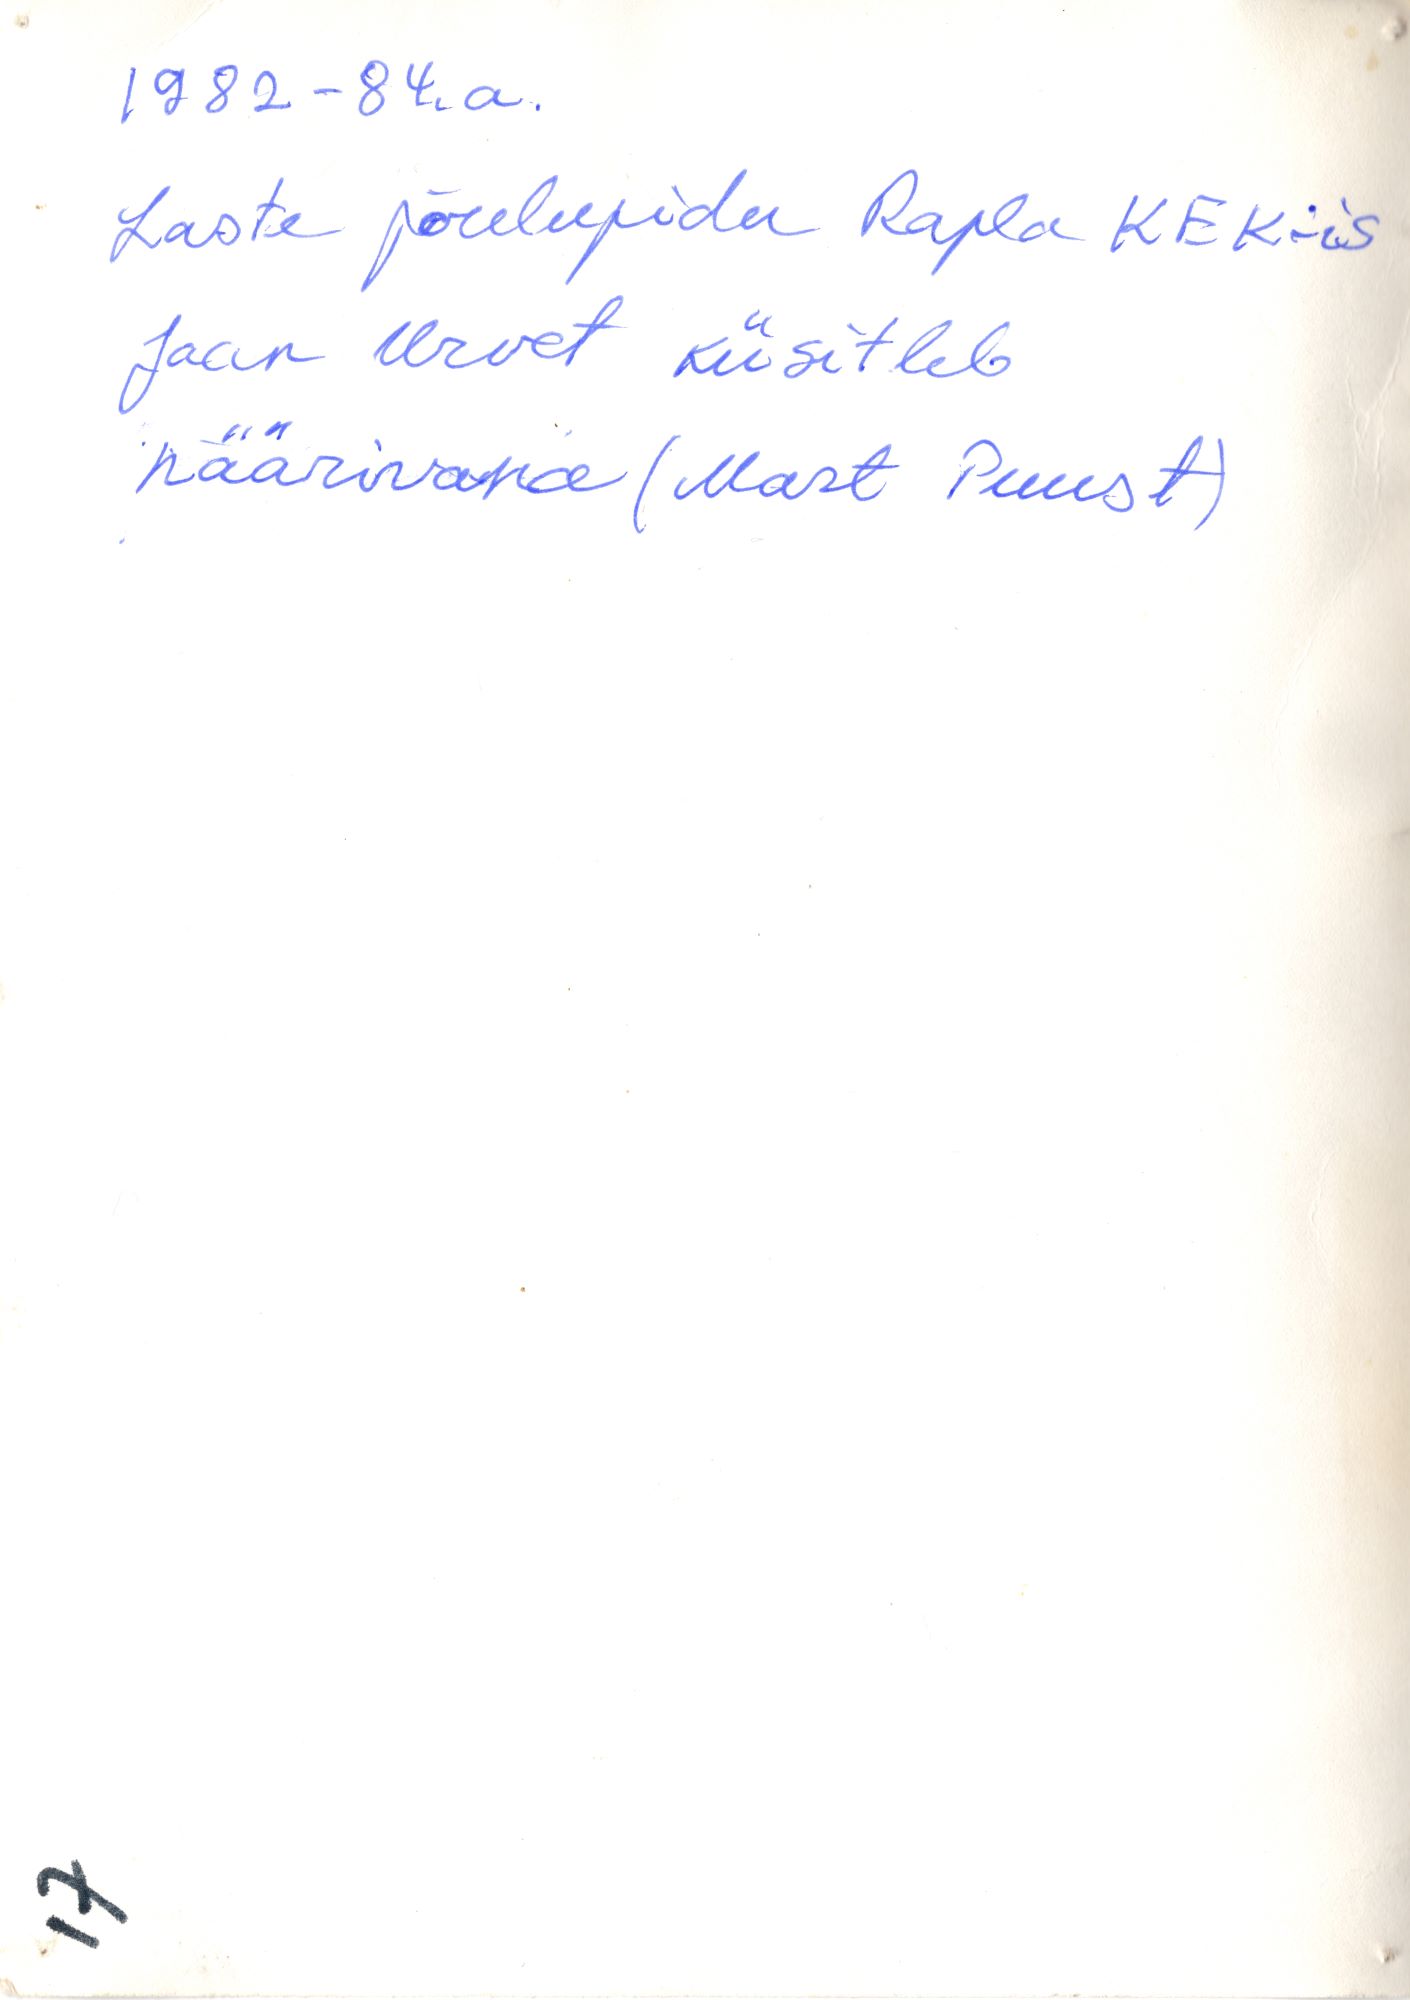 1982-84.a.
Laste jõulupidu Rapla KEK-is
Jaan Urvet küsitleb
näärivana (Mart Puust)
17